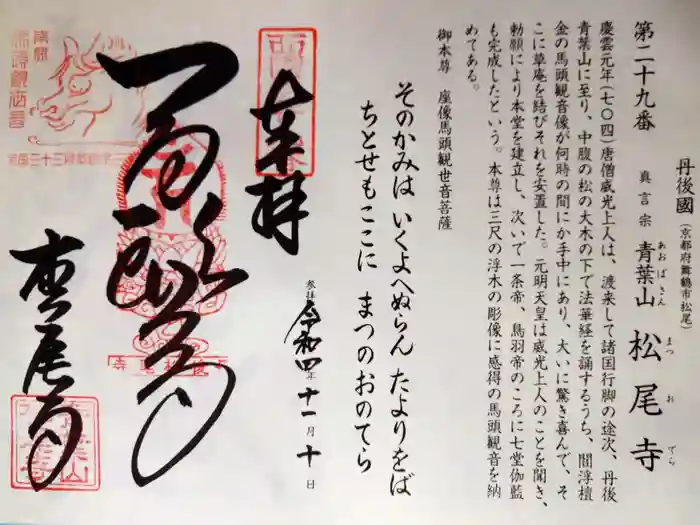 第二十九番
丹後國(京都府舞鶴市松尾)
真言宗 青葉山 松尾寺
あおばさん
まつおでら
慶雲元年(七〇四)唐僧威光上人は、渡来して諸国行脚の途次、丹後
青葉山に至り、中腹の松の大木の下で法華経を誦するうち、閻浮檀
金の馬頭観音像が何時の間にか手中にあり、大いに驚き喜んで、そ
こに草庵を結びそれを安置した。元明天皇は威光上人のことを聞き、
勅願により本堂を建立し、次いで一条帝、鳥羽帝のころに七堂伽藍
も完成したという。本尊は三尺の浮木の彫像に感得の馬頭観音を納
めてある。
御本尊 座像馬頭観世音菩薩
そのかみは いくよへぬらん たよりをば
ちとせもここに まつのおのてら
奉拝
参拝 令和四年十一月十日
松尾寺